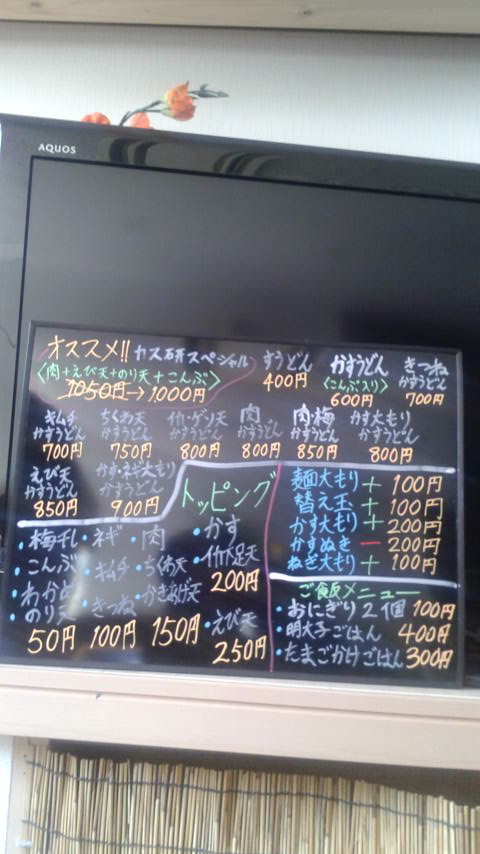 AQUOS
オススメ!! カス研スペシャル
〈肉+えび天+のり天+こんぶ〉
1050円→1000円
すうどん
400円
かすうどん
〈こんぶ入り〉
600円
きつね
かすうどん
700円
キムチ
かすうどん
700円
ちくわ天
かすうどん
750円
かすうどん
800円
肉
かすうどん
800円
肉梅
かすうどん
850円
かす大もり
かすうどん
800円
えび天
かすうどん
850円
かす・ネギ大もり
かすうどん
900円
トッピング
・梅干し
・こんぶ
・わかめ
・のり天
50円
・ネギ
・キムチ
・きつね
100円
・肉
・ちくわ天
・かきあげ天
150円
・かす
200円
・えび天
250円
麺大もり + 100円
替え玉 + 100円
かす大もり + 200円
かすぬき − 200円
ねぎ大もり + 100円
ご飯メニュー
・おにぎり2個 100円
・明太子ごはん 400円
・たまごかけごはん 300円